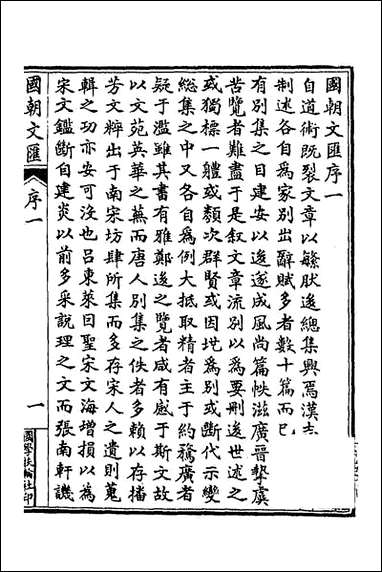 國朝文匯序一
自道術既裂文章以繇狀後總集興焉漢志
制述各自爲家別出辭賦多者數十篇而已
有別集之目建安以後遂成風尚篇帙滋廣晉摯虞
苦覽者難盡于是叙文章流別以爲要刪後世述之
或獨標一體或類次羣賢或因地爲別或斷代示變
總集之中又各自爲例大抵取精者主于約騖廣者
疑于濫雖其書有雅鄭後之覽者咸有感于斯文故
以文苑英華之蕪而唐人別集之佚者多賴以存播
芳文粹出于南宋坊肆所集而多存宋人之遺則蒐
輯之功亦安可沒也呂東萊因聖宋文海增損以爲
宋文鑑斷自建炎以前多采說理之文而張南軒譏
國朝文匯
序一
一
國學扶輪社印